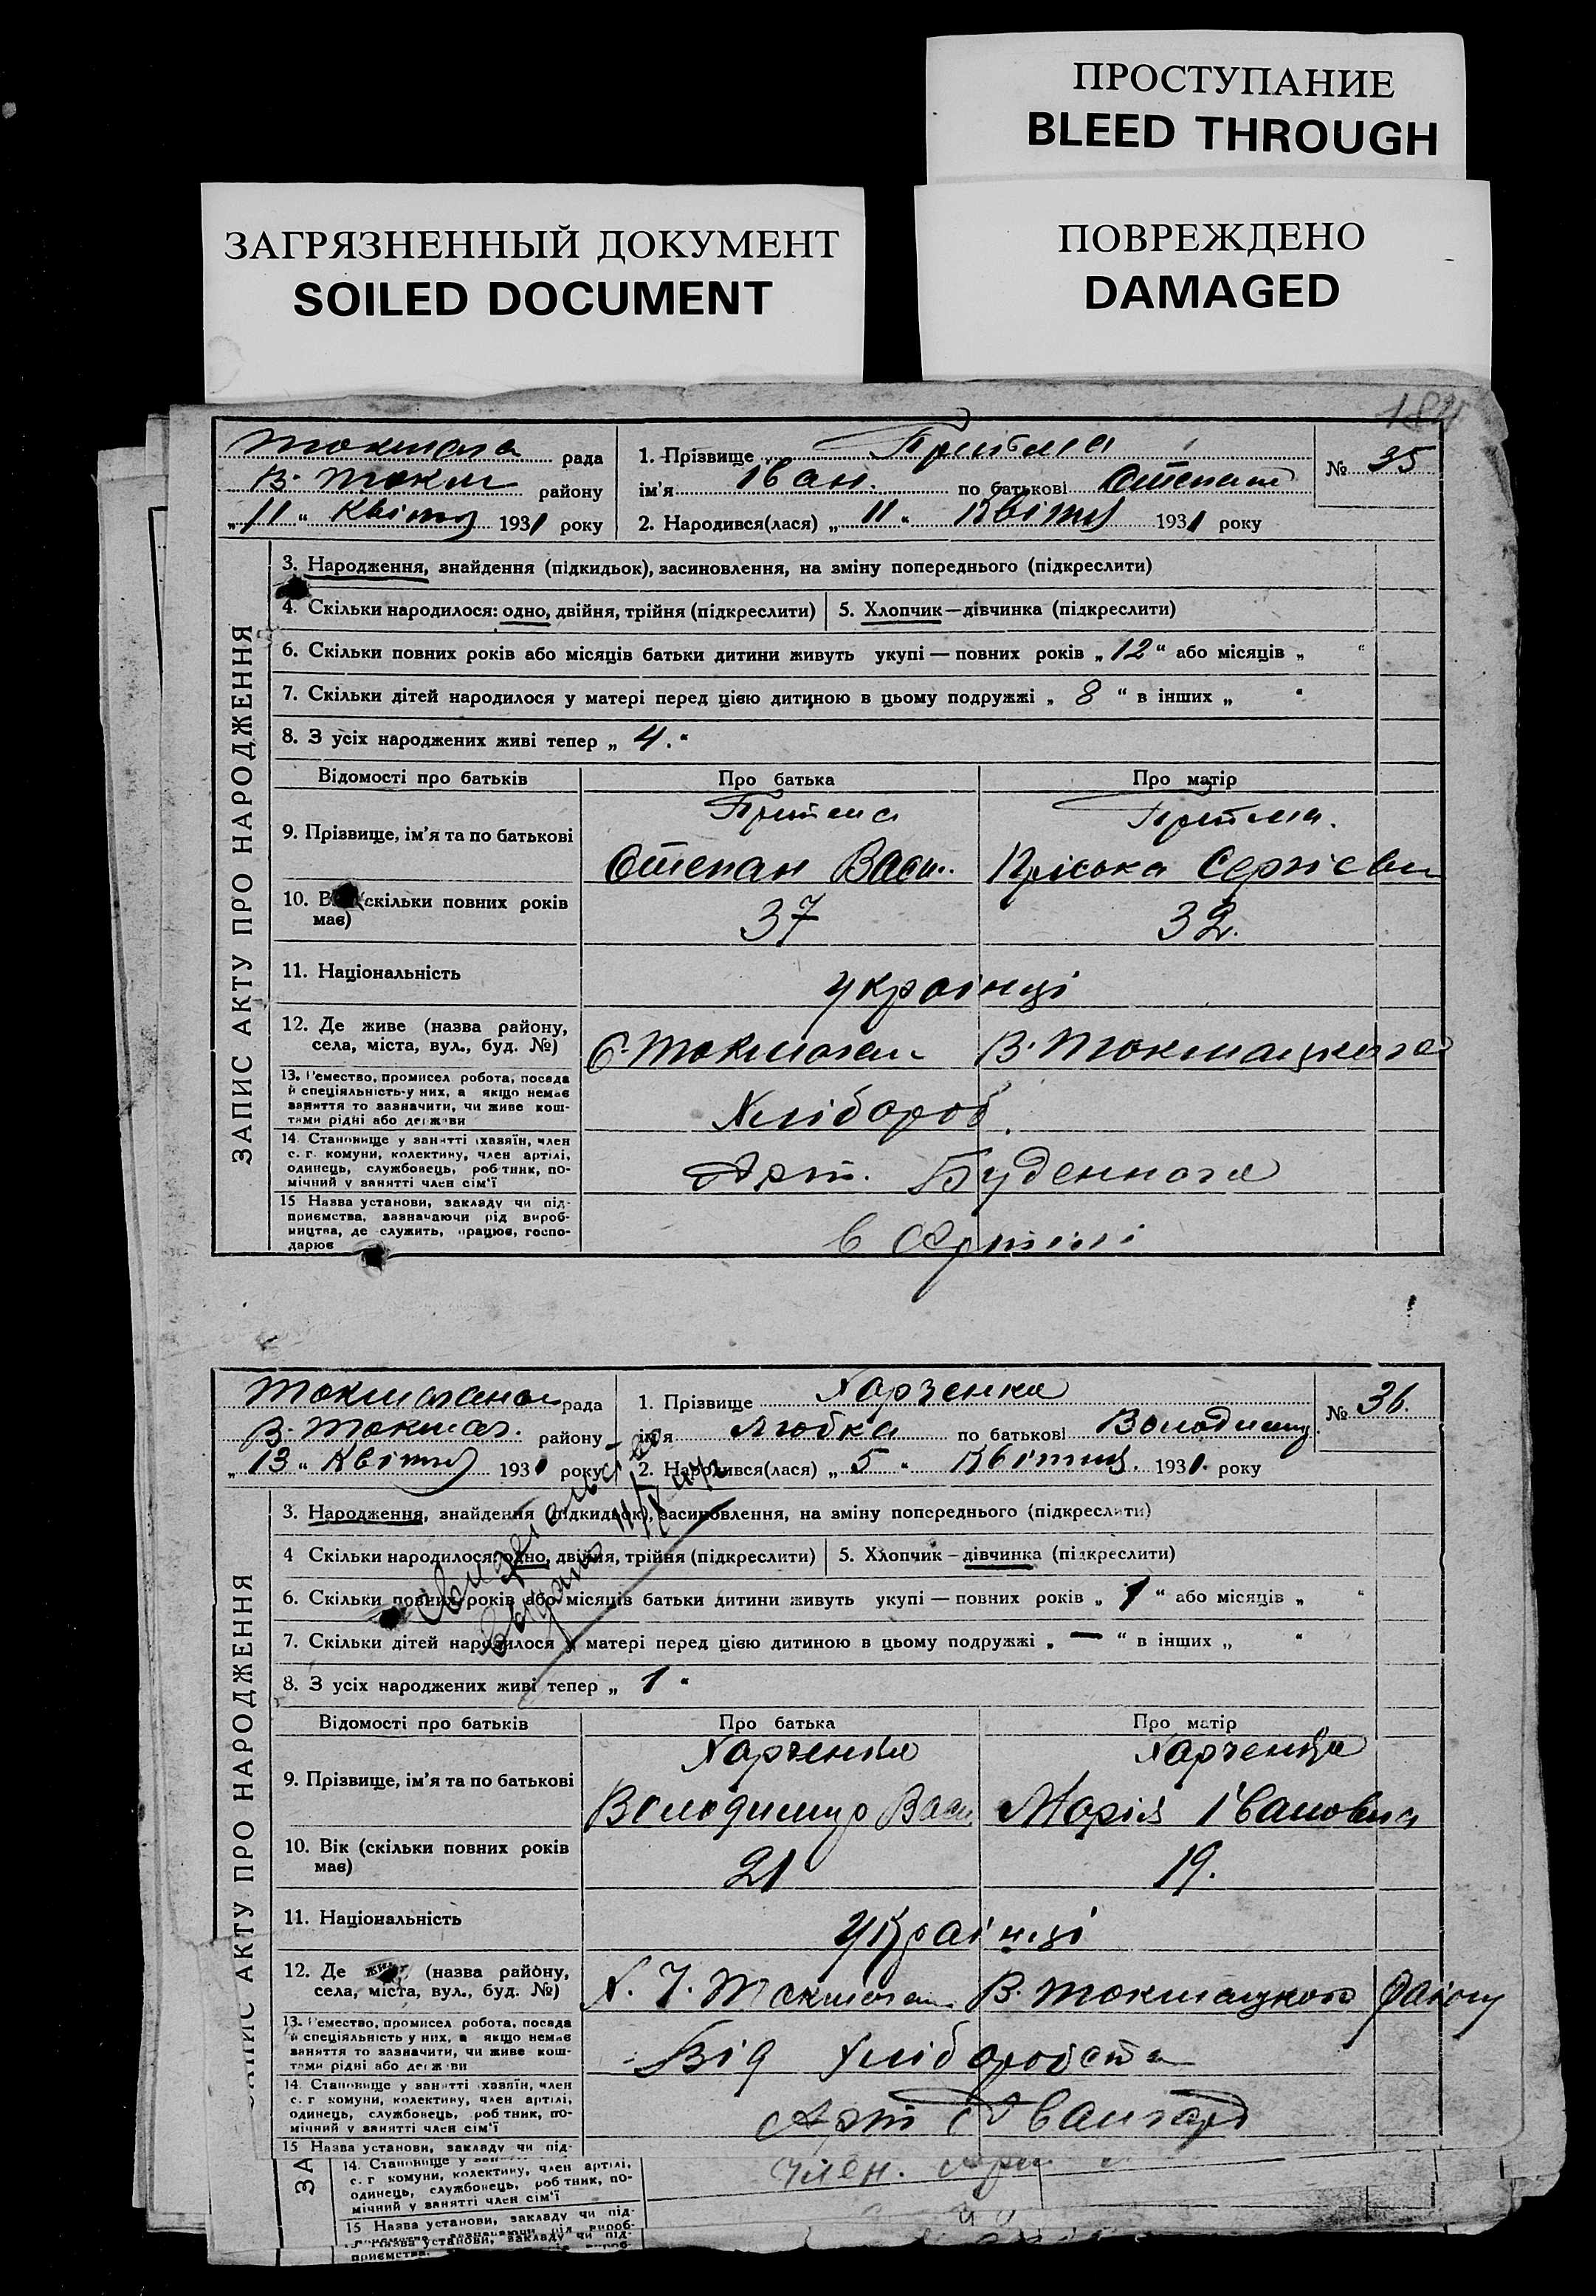 ПРОСТУПАНИЕ
BLEED THROUGH
ЗАГРЯЗНЕННЫЙ ДОКУМЕНТ
SOILED DOCUMENT
ПОВРЕЖДЕНО
DAMAGED
рада
В. Токм району
„ 11 “ Квітня 1931 року
1. Прізвище Прийма
ім'я Іван. по батькові Степан
2. Народився(лася) „ 11 “ Квітня 1931 року
№ 35
ЗАПИС АКТУ ПРО НАРОДЖЕННЯ
3. Народження, знайдення (підкидьок), засиновлення, на зміну попереднього (підкреслити)
4. Скільки народилося: одно, двійня, трійня (підкреслити) 5. Хлопчик—дівчинка (підкреслити)
6. Скільки повних років або місяців батьки дитини живуть укупі — повних років „ 12 “ або місяців „ “
7. Скільки дітей народилося у матері перед цією дитиною в цьому подружжі „ 8 “ в інших „ “
8. З усіх народжених живі тепер „ 4. “
Відомості про батьків Про батька Про матір
9. Прізвище, ім'я та по батькові
Прийма Прийма.
Степан Васи. Пріська Сергієвн
10. В (скільки повних років має) 37 32.
11. Національність українці
12. Де живе (назва району, села, міста, вул., буд. №)
В. Токмацького
13. Ремество, промисел робота, посада
й спеціяльність у них, а якщо немає
заняття то зазначити, чи живе кош-
тами рідні або держави
Хлібороб.
14. Становище у занятті (хазяїн, член
с. г. комуни, колективу, член артілі,
одинець, службовець, робітник, по-
мічний у занятті член сім'ї
Арт. Буденного
15 Назва установи, закладу чи під-
приємства, зазначаючи рід вироб-
ництва, де служить, працює, госпо-
дарює
в Артілі
рада
В. Токмат. району
„ 13 “ Квітня 1931 року
1. Прізвище Харченко
ім'я Любка по батькові Володимир.
2. Народився(лася) „ 5 “ Квітня. 1931. року
№ 36.
ЗАПИС АКТУ ПРО НАРОДЖЕННЯ
3. Народження, знайдення (підкидьок), засиновлення, на зміну попереднього (підкреслити)
4 Скільки народилося: одно, двійня, трійня (підкреслити) 5. Хлопчик – дівчинка (підкреслити)
6. Скільки повних років або місяців батьки дитини живуть укупі — повних років „ 1 “ або місяців „ “
7. Скільки дітей народилося у матері перед цією дитиною в цьому подружжі „ — “ в інших „ “
8. З усіх народжених живі тепер „ 1 “
Відомості про батьків Про батька Про матір
9. Прізвище, ім'я та по батькові
Харченко Харченко
Володимир Васи Марія Івановна
10. Вік (скільки повних років має) 21 19.
11. Національність українці
12. Де живе (назва району, села, міста, вул., буд. №)
В. Токмацького району
13. Ремество, промисел робота, посада
й спеціяльність у них, а якщо немає
заняття то зазначити, чи живе кош-
тами рідні або держави
Від хліборобств
14. Становище у занятті (хазяїн, член
с. г. комуни, колективу, член артілі,
одинець, службовець, робітник, по-
мічний у занятті член сім'ї
Арт Авангард
15 Назва установи, закладу чи під-
14. Становище у
с. г. комуни, колективу, член артілі,
одинець, службовець, робітник, по-
мічний у занятті член сім'ї
член.
15 Назва установи, закладу чи під-
установи, закладу чи під-
приємства.